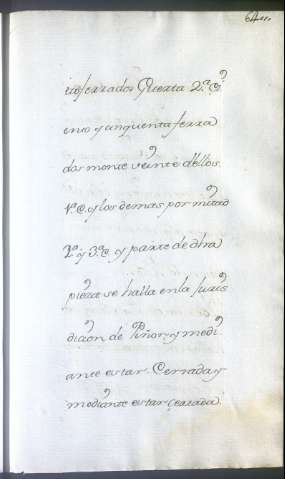 64..
ito ferrados Querta 2.ª C.
ento y cinquenta ferra
dos monte veinte dellos.
1.ª C. y los demas por mitad
2.ª y 3.ª C. y parte de dha
pieza se halla en la Juris
dizon de Piñor, y medi
ante estar Cerrada y
mediante estar Cerrada.